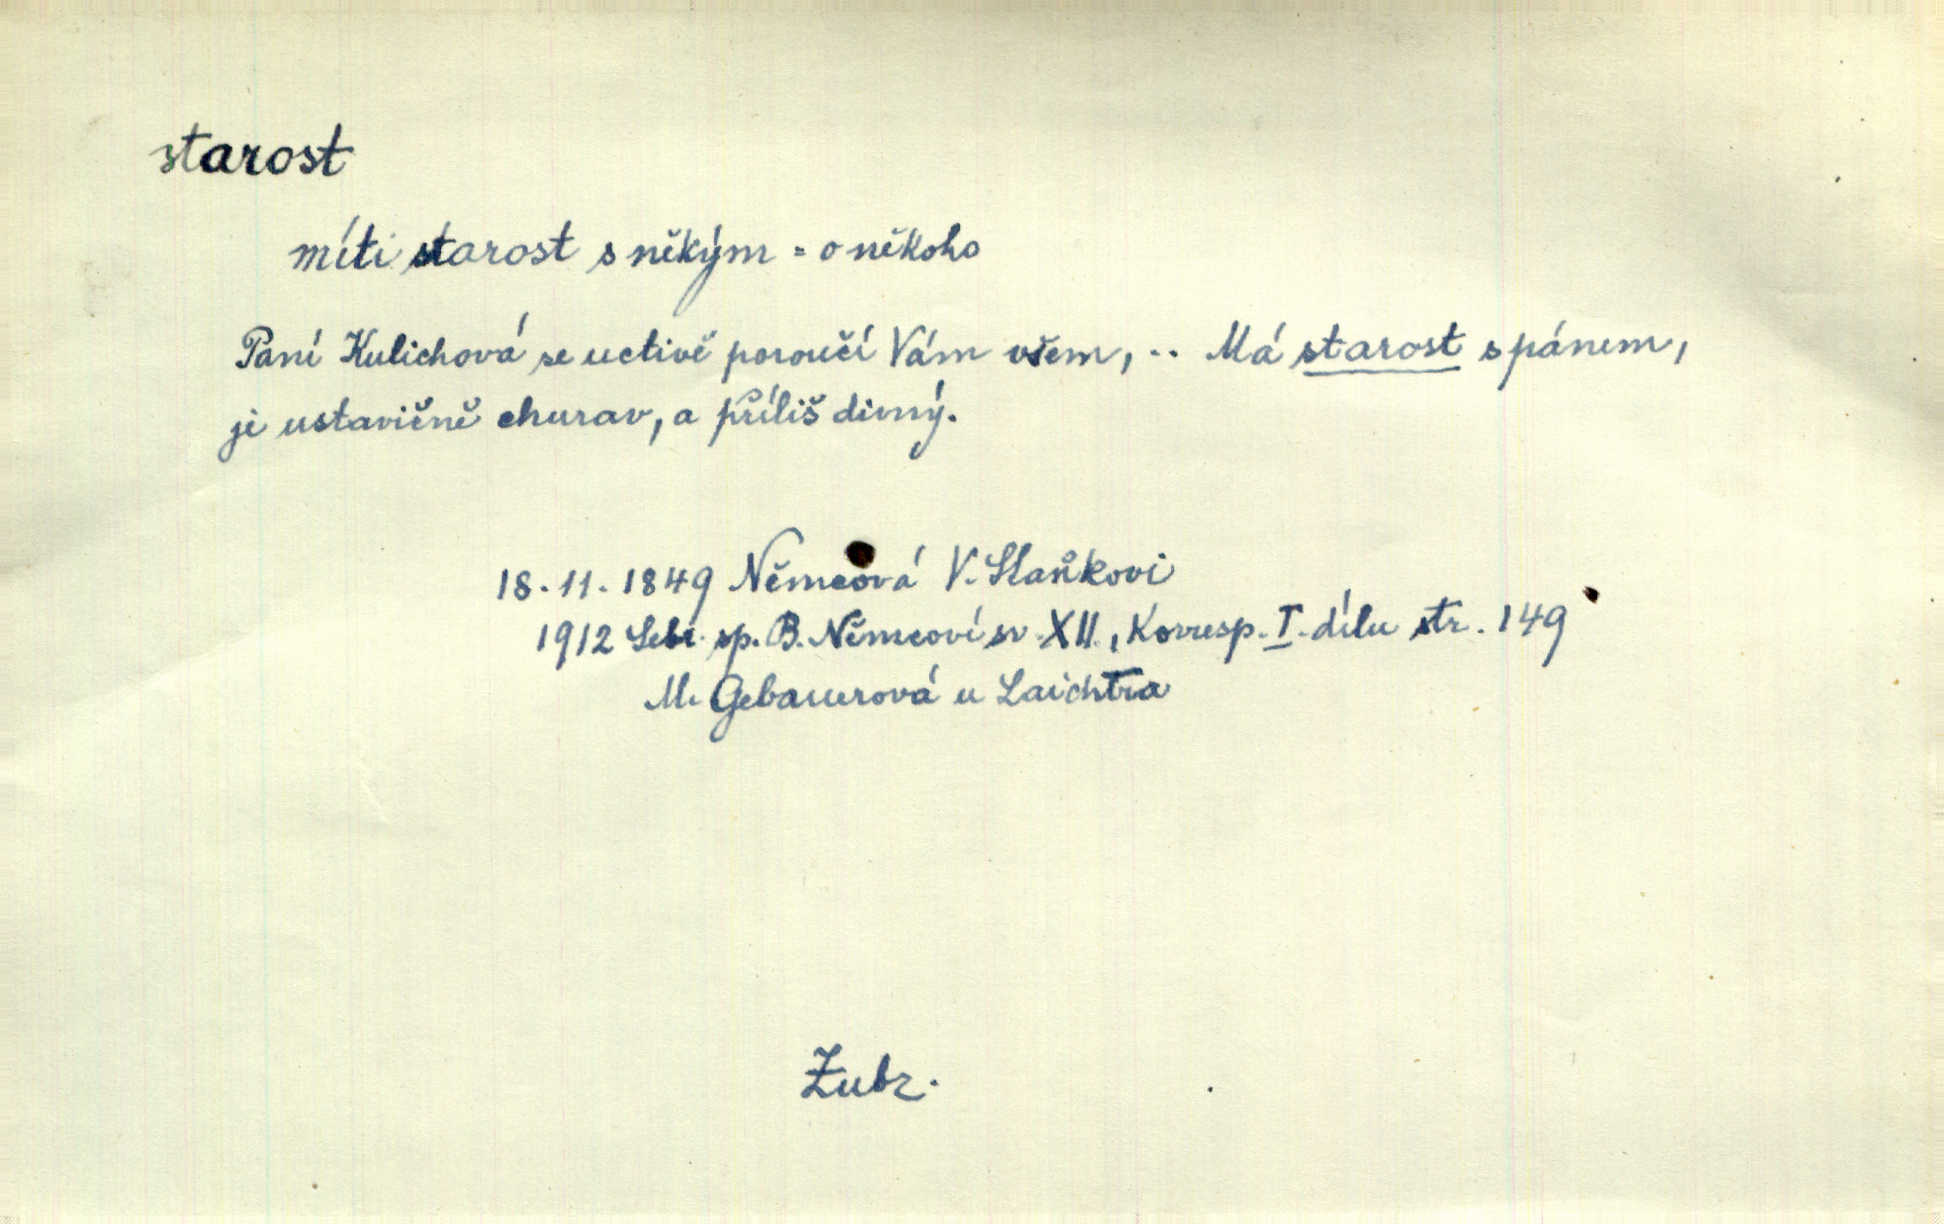 starost
míti starost s někým = o někoho
Paní Kulichová se uctivě poroučí Vám všem, .. Má starost s pánem,
je ustavičně churav, a příliš divný.
18. 11. 1849 Němcová V. Staňkovi
1912 Sebr. sp. B. Němcoví sv. XII., Korresp. I. dílu str. 149
M. Gebauerová u Laichtra
Zubr.